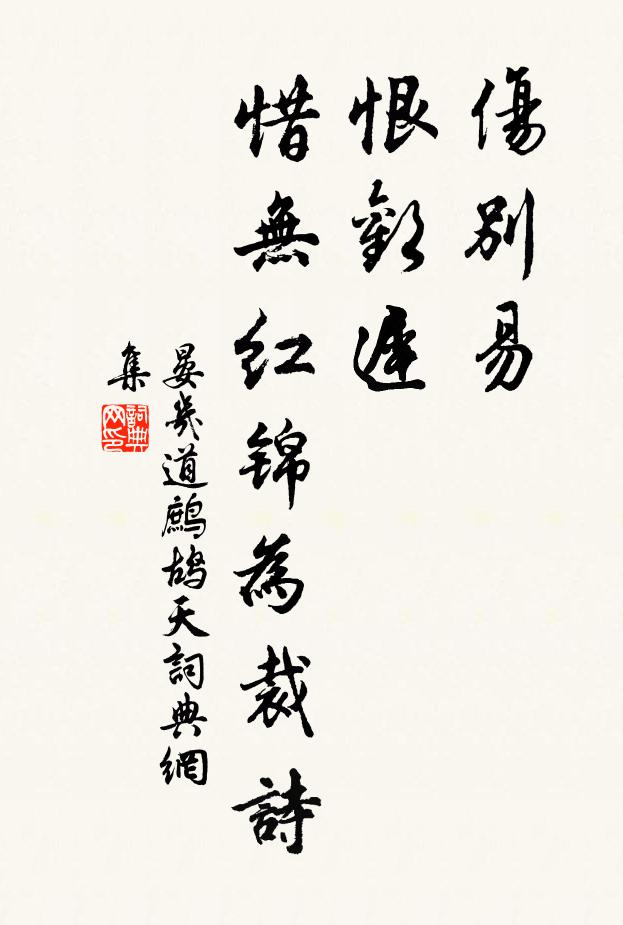 傷別易
恨歡遲
惜無紅錦為裁詩
晏幾道鷓鴣天詞典網
集
詞典网印